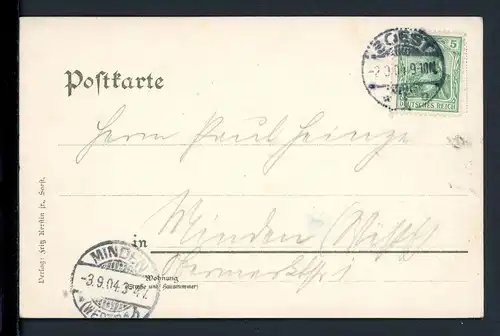 SOEST
-2.9.04.9-10V.
5
DEUTSCHES REICH
Postkarte
Herrn Paul Heinze
in Minden (Westf)
Wohnung
(Straße und Hausnummer)
MINDEN
-3.9.04.3-4
(WESTF.)
Verlag: Fritz Kerstin jr., Soest.